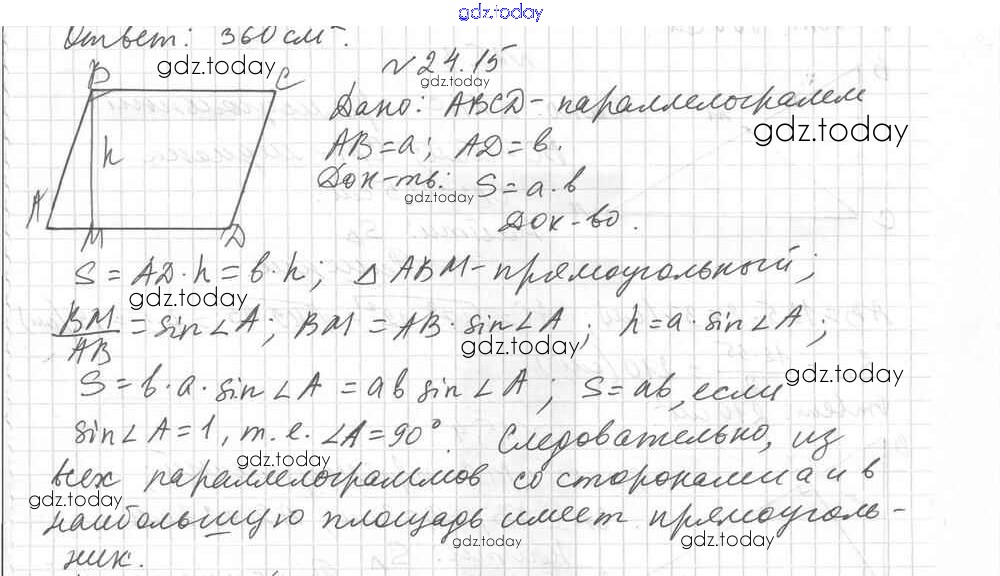 gdz.today
Ответ: 360 см².
№ 24.15
B C
h
A M D
Дано: ABCD - параллелограмм
AB = a; AD = b.
Док-ть: S = a·b
Док-во.
S = AD·h = b·h; △ ABM - прямоугольный;
BM/AB = sin∠A; BM = AB·sin∠A; h = a·sin∠A;
S = b·a·sin∠A = ab sin∠A; S = ab, если
sin∠A = 1, т.е. ∠A = 90°. Следовательно, из
всех параллелограммов со сторонами a и b
наибольшую площадь имеет прямоуголь-
ник.
gdz.today
gdz.today
gdz.today
gdz.today
gdz.today
gdz.today
gdz.today
gdz.today
gdz.today
gdz.today
gdz.today